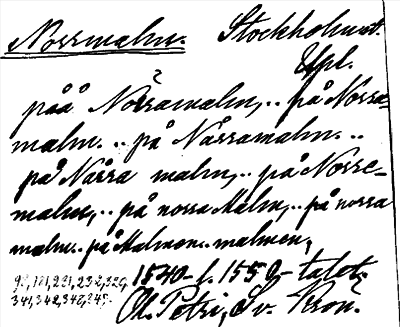 Norrmalm. Stockholm st.
Upl.
påå Nörramalm, .. på Norra-
malm. .. på Nårramalm. ..
på Nårra malm, .. på Norre-
malm, .. på norra Malm, .. på norra
malm .. på Malmen .. malmen,
1540- l. 1550-talet.
Ol. Petri, Sv. Krön.